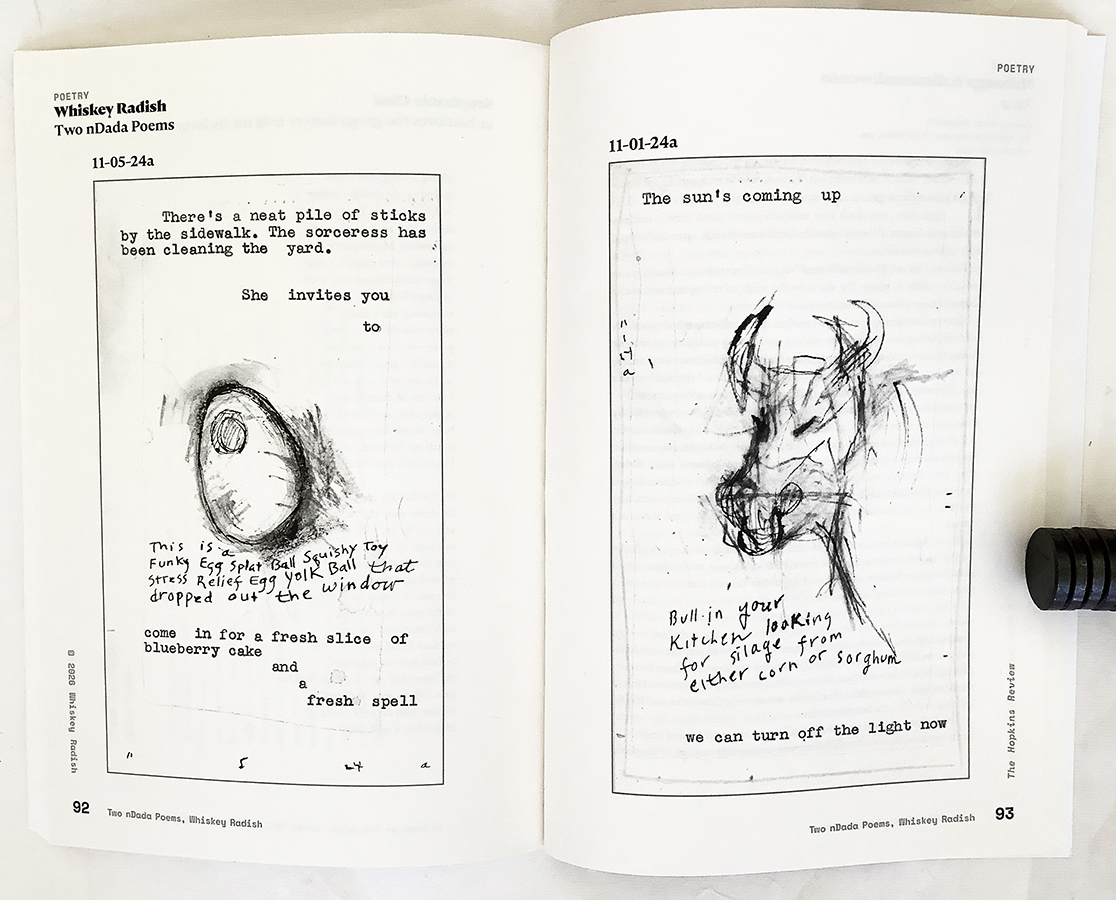 POETRY
Whiskey Radish
Two nDada Poems
11-05-24a
There's a neat pile of sticks
by the sidewalk. The sorceress has
been cleaning the yard.
She invites you
to
This is a
Funky Egg Splat Ball Squishy Toy
Stress Relief Egg Yolk Ball that
dropped out the window
come in for a fresh slice of
blueberry cake
and
a
fresh spell
11 5 24 a
© 2026 Whiskey Radish
92 Two nDada Poems, Whiskey Radish
POETRY
11-01-24a
The sun's coming up
11
1
24
a
Bull in your
Kitchen looking
for silage from
either corn or sorghum
we can turn off the light now
The Hopkins Review
Two nDada Poems, Whiskey Radish 93